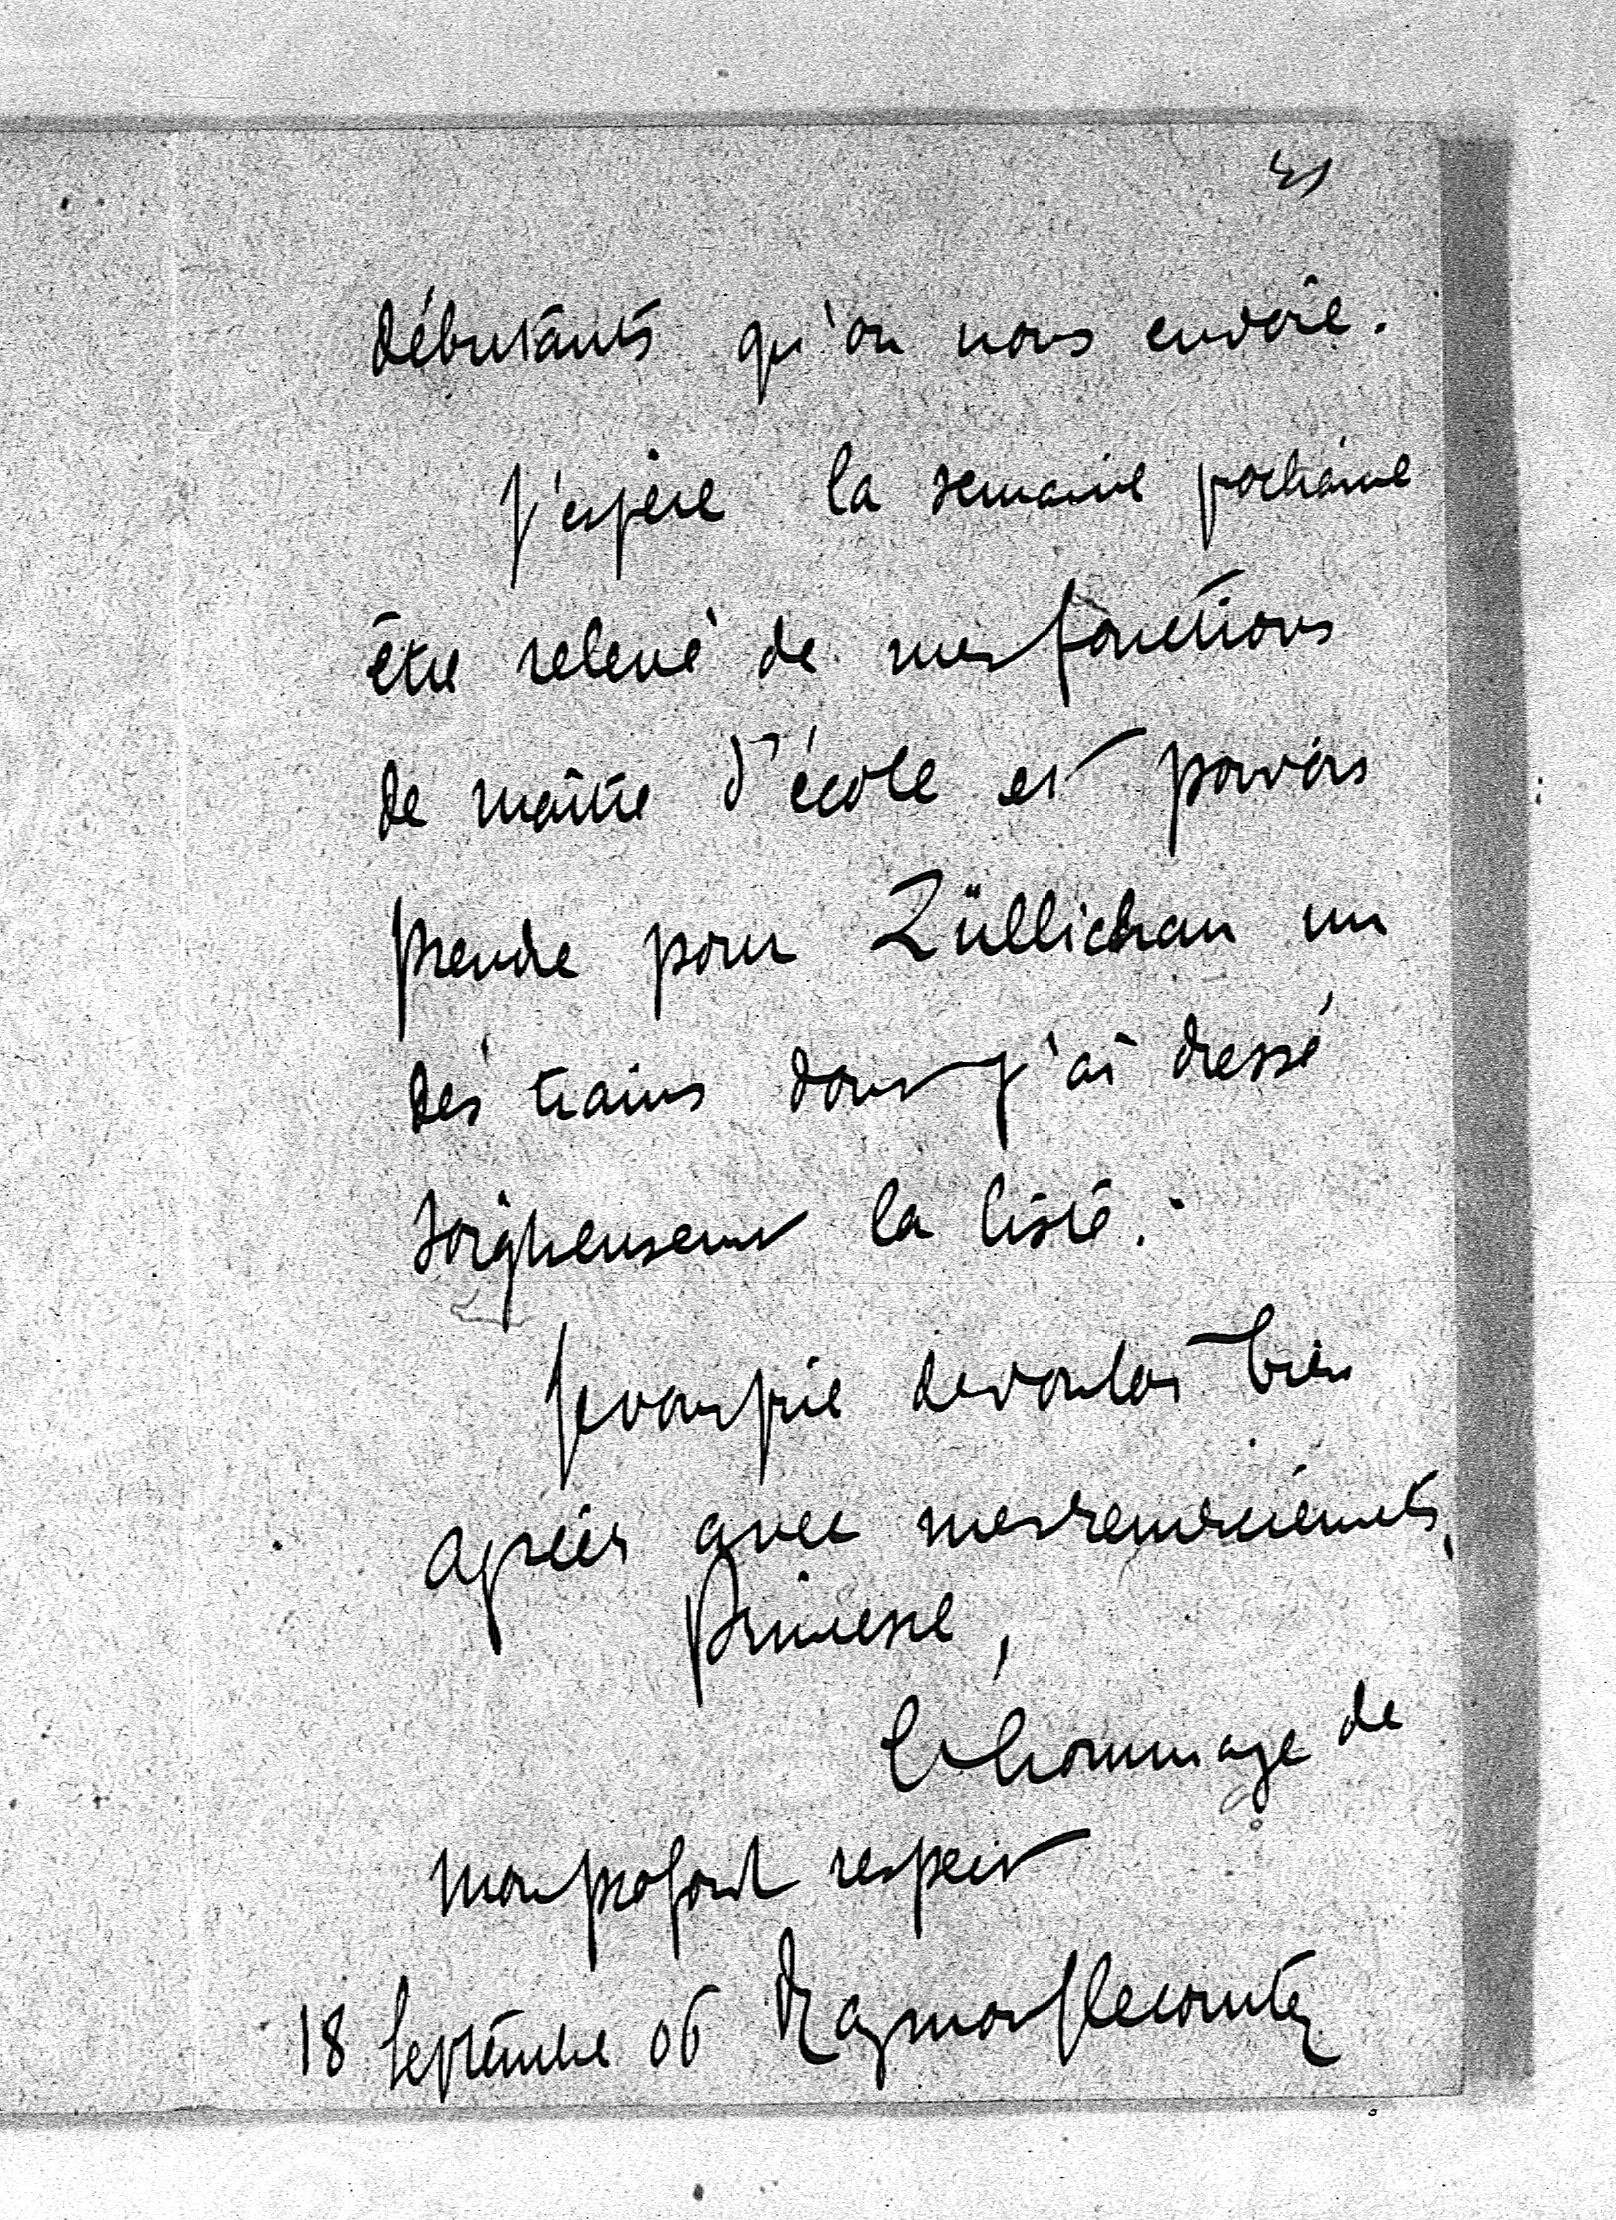 débutants qu'on nous envoie.
J'espère la semaine prochaine
être relevé de mes fonctions
de maître d'école et pouvoir
prendre pour Züllichau un
des trains dont j'ai dressé
soigneusement la liste.
Je vous prie de vouloir bien
agréer avec mes remerciements,
Princesse,
l'hommage de
mon profond respect
18 Septembre 06 Raymond Lecomte